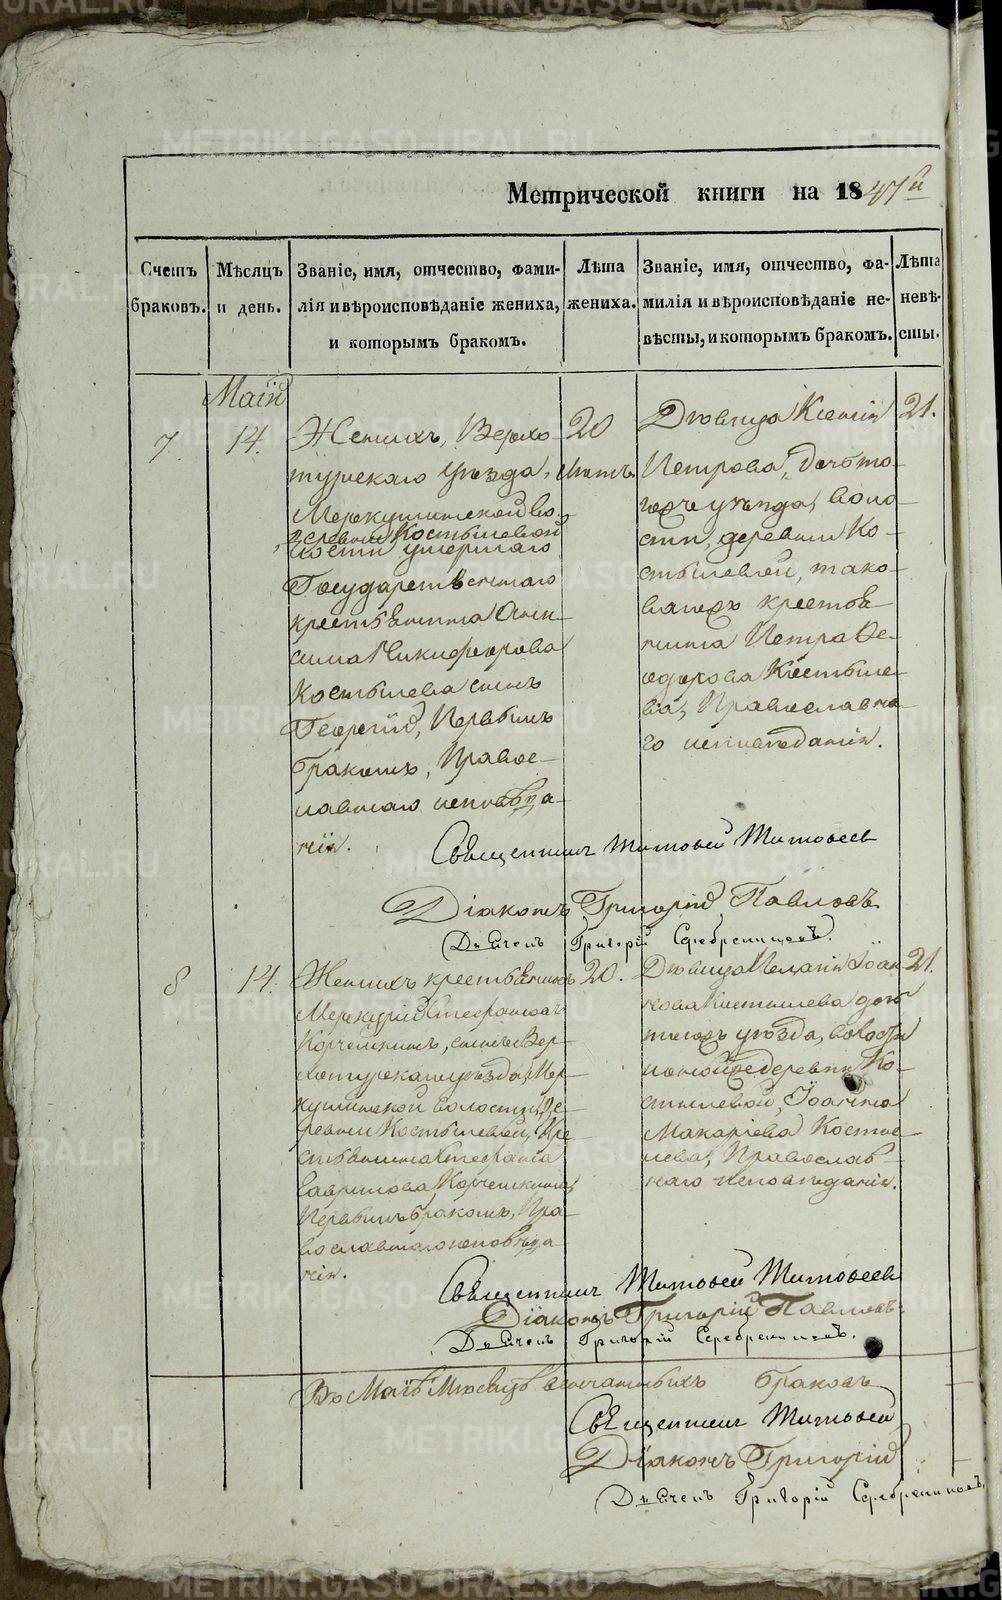 METRIKI.GASO-URAL.RU
Метрической книги на 1847й
Счетъ браковъ.
Мѣсяцъ и день.
Званіе, имя, отчество, фами-
лія и вѣроисповѣданіе жениха,
и которымъ бракомъ.
Лѣта
жениха.
Званіе, имя, отчество, фа-
милія и вѣроисповѣданіе не-
вѣсты, и которымъ бракомъ.
Лѣта
невѣ-
сты.
Маій
7.
14.
Женихъ, Верхо-
турскаго уѣзда,
Меркушинской во-
деревни Костылевой
лости умершаго
Государственнаго
крестьянина Они-
сима Никифорова
Костылева сынъ
Георгій, Первымъ
бракомъ, Правос-
лавнаго исповѣда-
нія.
20
лѣтъ.
Дѣвица Ксенія
Петрова, дочь то-
гожъ уѣзда, воло-
сти, деревни Ко-
стылевой, тако-
ваго жъ крестья-
нина Петра Фе-
одорова Костыле-
ва, Православна-
го исповѣданія.
21.
Священникъ Матѳей Матѳеевъ
Діаконъ Григорій Павловъ
Дьячекъ Григорій Серебрениковъ.
8
14.
Женихъ крестьянинъ
Меркурій Стефановъ
Корчемкинъ, сынъ Вер-
хотурскаго уѣзда, Мер-
кушинской волости, де-
ревни Костылевой, Кре-
стьянина Стефана
Гаврилова Корчемкина,
Первымъ бракомъ, Пра-
вославнаго исповѣда-
нія.
20.
Дѣвица Пелагія Іоан-
нова Костылева дочь
тогожъ уѣзда, волости
и деревни Ко-
стылевой, Іоанна
Макаріева Косты-
лева, Православ-
наго исповѣданія.
21.
Священникъ Матѳей Матѳеевъ
Діаконъ Григорій Павловъ
Дьячекъ Григорій Серебрениковъ.
Въ Маіѣ Мѣсяцѣ вѣнчанныхъ браковъ
Священникъ Матѳей
Діаконъ Григорій
Дьячекъ Григорій Серебрениковъ,